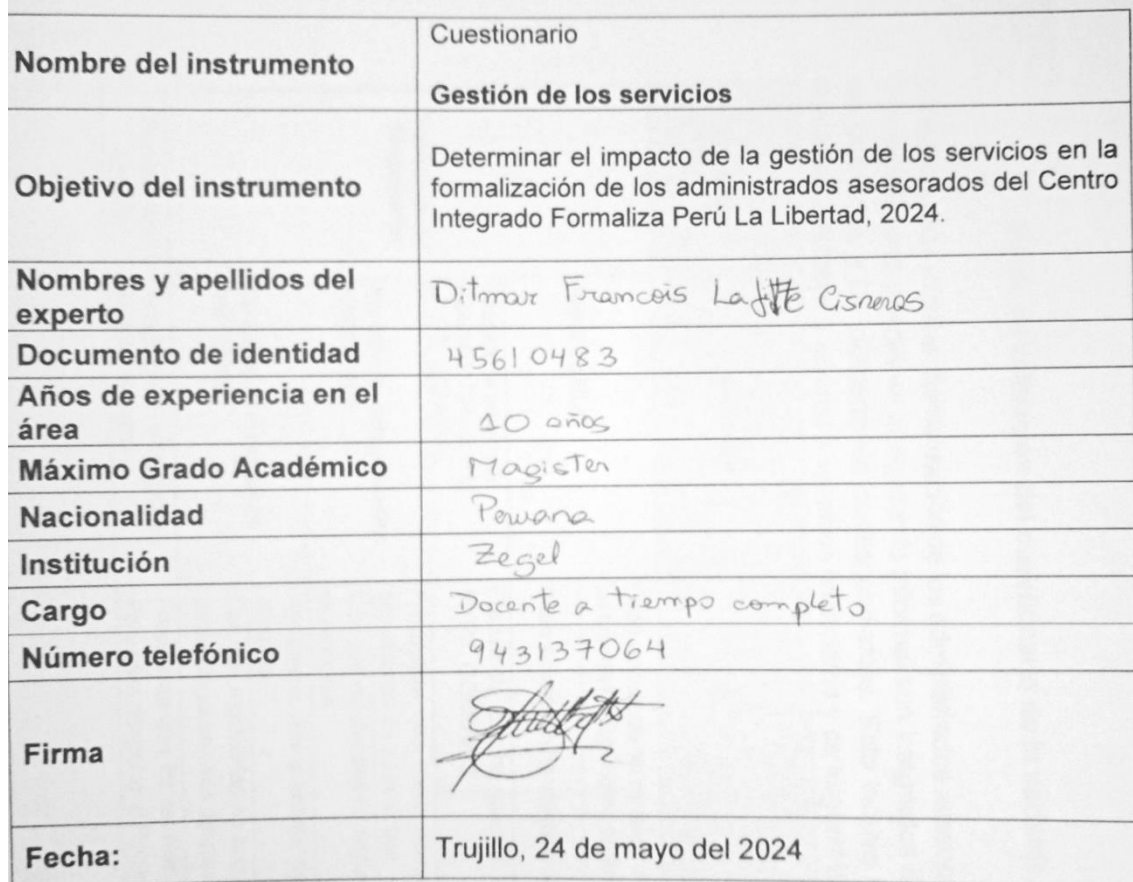 Nombre del instrumento
Cuestionario
Gestión de los servicios
Objetivo del instrumento
Determinar el impacto de la gestión de los servicios en la
formalización de los administrados asesorados del Centro
Integrado Formaliza Perú La Libertad, 2024.
Nombres y apellidos del
experto
Ditmar Francois Lafitte Cisneros
Documento de identidad
45610483
Años de experiencia en el
área
10 años
Máximo Grado Académico
Magister
Nacionalidad
Peruana
Institución
Zegel
Cargo
Docente a tiempo completo
Número telefónico
943137064
Firma
Fecha:
Trujillo, 24 de mayo del 2024